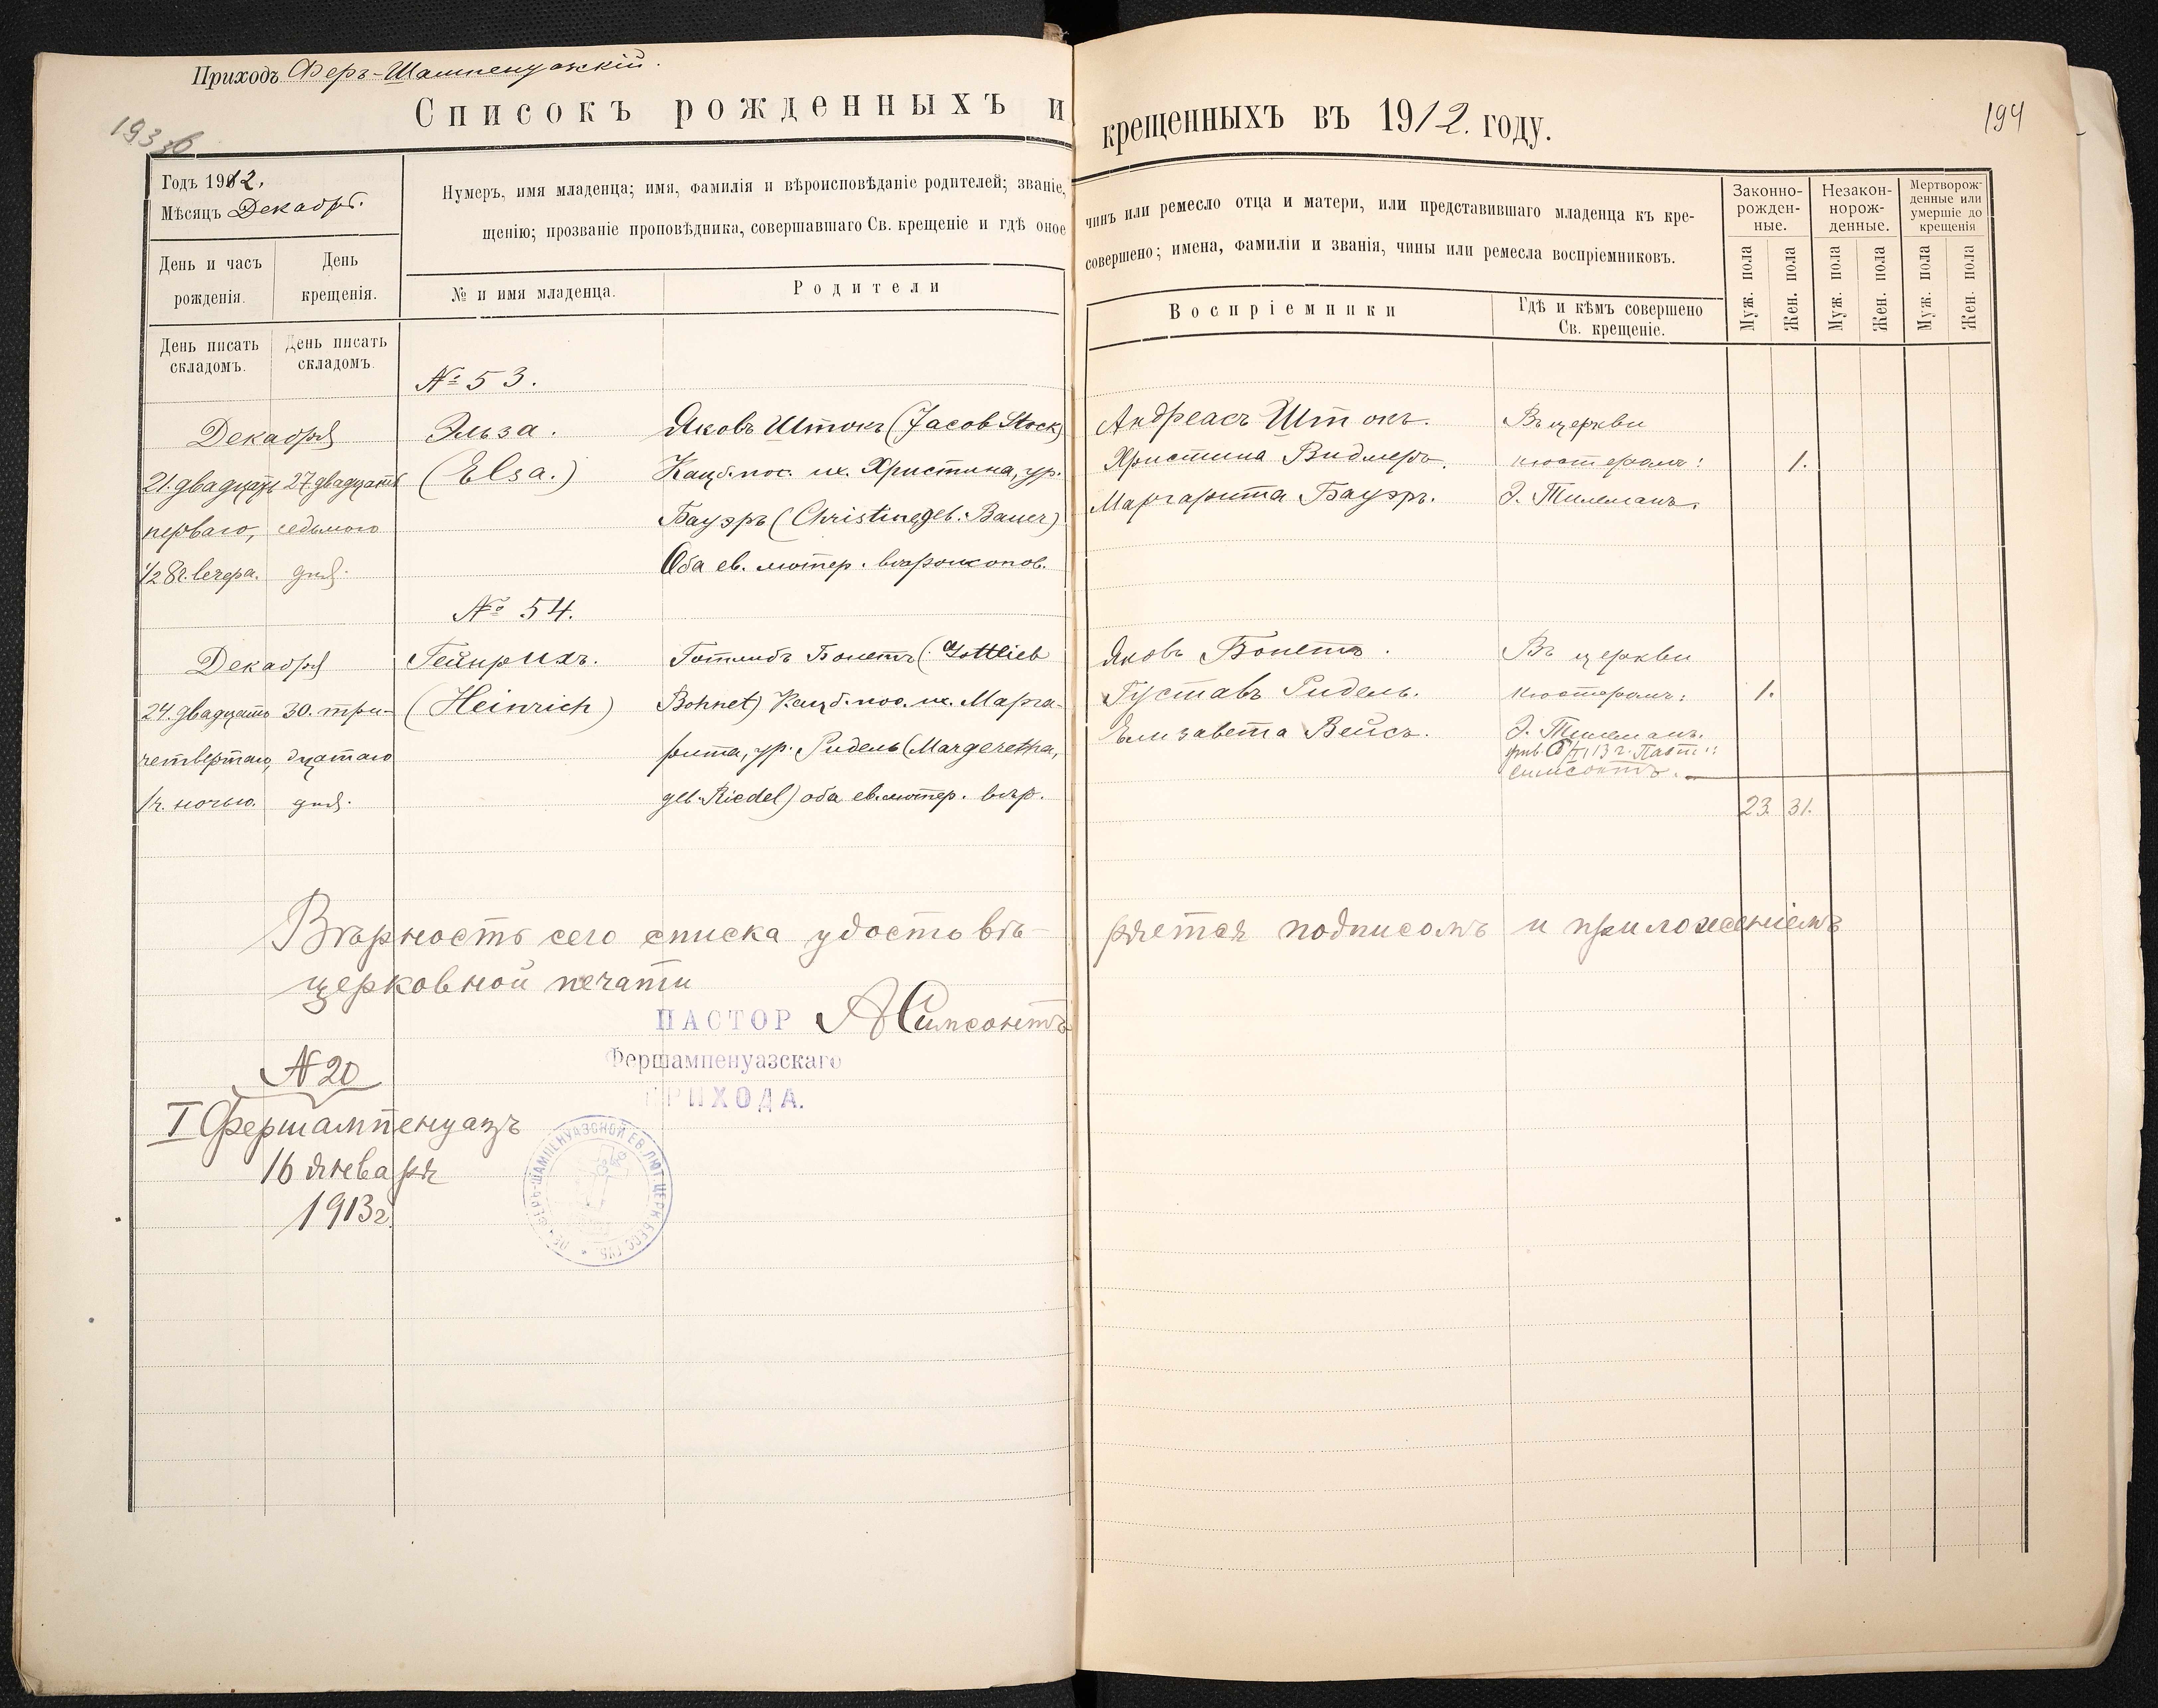 Приходъ Феръ-Шампенуазскій.
Списокъ рожденныхъ и крещенныхъ въ 1912. году.
193об
194
Годъ 1912.
Мѣсяцъ Декабрь.
Нумеръ, имя младенца; имя, фамилія и вѣроисповѣданіе родителей; званіе, чинъ или ремесло отца и матери, или представившаго младенца къ кре-
щенію; прозваніе проповѣдника, совершавшаго Св. крещеніе и гдѣ оное совершено; имена, фамиліи и званія, чины или ремесла воспріемниковъ.
Законно-
рожден-
ные.
Незакон-
норож-
денные.
Мертворож-
денные или
умершіе до
крещенія
День и часъ
рожденія.
День
крещенія.
№ и имя младенца.
Родители
Воспріемники
Гдѣ и кѣмъ совершено
Св. крещеніе.
Муж. пола
Жен. пола
Муж. пола
Жен. пола
Муж. пола
Жен. пола
День писать
складомъ.
День писать
складомъ.
№ 53.
Декабря
21. двадцать
перваго,
1/2 8 ч. вечера.
27. двадцать
седьмого
дня.
Эльза.
(Elsa.)
Яковъ Штокъ (Jacob Stock)
Христина, ур.
Бауэръ (Christine geb. Bauer)
Оба ев. лютер. вѣроиспов.
Андреасъ Штокъ.
Христина Видмеръ.
Маргарита Бауэръ.
Въ церкви
кюстеромъ:
Э. Тилеманъ.
1.
№ 54.
Декабря
24. двадцать
четвертаго,
1 ч. ночью.
30. три-
дцатаго
дня.
Гейнрихъ.
(Heinrich)
Готлибъ Бонетъ (Gottlieb
Bohnet) Марга-
рита, ур. Ридель (Margeretha,
geb. Riedel) оба ев. лютер. вѣр.
Яковъ Бонетъ.
Густавъ Ридель.
Елизавета Вейсъ.
Въ церкви
кюстеромъ:
Э. Тилеманъ.
13 г. Паст:
Симсонтъ.
1.
23. 31.
Вѣрность сего списка удостовѣ-ряется подписомъ и приложеніемъ
церковной печати
ПАСТОР АСимсонтъ
Фершампенуазскаго
ПРИХОДА.
N 20
I Фершампенуазъ
16 января
1913 г.
ФЕРЪ-ШАМПЕНУАЗСКОЙ ЕВ. ЛЮТ. ЦЕРК. БЕСС. ГУБ.